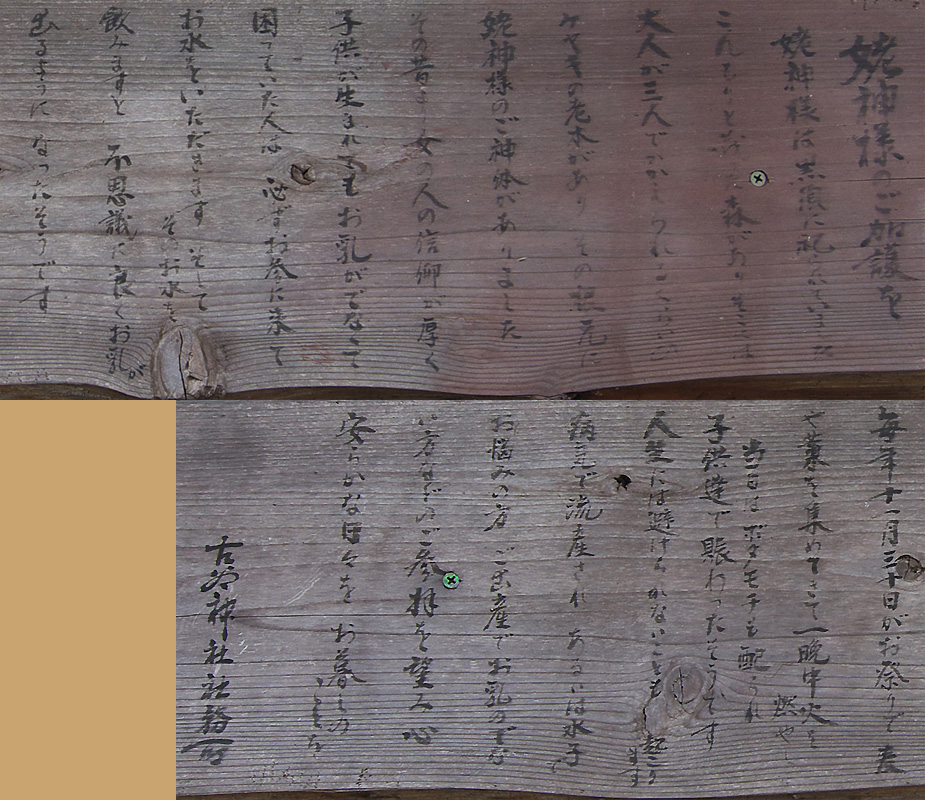 姥神様のご加護を
姥神様は黒須に祀られていました
こんもりと 森があり そこは
大人が三人でかかえ くらいの
ケヤキの老木があり その根元に
姥神様のご神体がありました
その昔より女の人の信仰が厚く
子供が生まれてもお乳がでなくて
困っていた人は 必ずお参に来て
お水をいただきます そして
そのお水を
飲みますと 不思議に良くお乳が
出るようになったそうです
毎年十一月三十日がお祭りで 麦
や藁を集めてきて一晩中火を
燃や
当日はボタモチも配られ
子供達で賑わったそうです
人生には避けられないことも起こります
病気で流産され あるいは水子
お悩みの方 ご出産でお乳の出な
い方などのご参拝を望み心
安らかな日々を お暮しの
ことを
古谷神社社務所